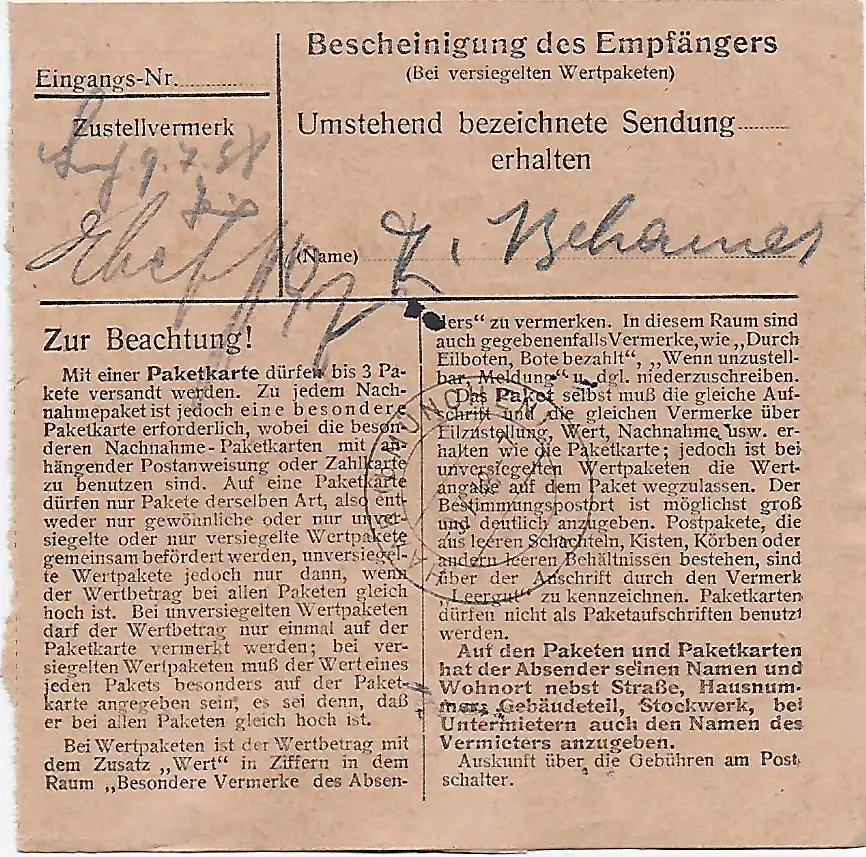 Bescheinigung des Empfängers
(Bei versiegelten Wertpaketen)
Eingangs-Nr.
Zustellvermerk
Umstehend bezeichnete Sendung
erhalten
(Name)
Zur Beachtung!
Mit einer Paketkarte dürfen bis 3 Pa-
kete versandt werden. Zu jedem Nach-
nahmepaket ist jedoch eine besondere
Paketkarte erforderlich, wobei die beson-
deren Nachnahme-Paketkarten mit an-
hängender Postanweisung oder Zahlkarte
zu benutzen sind. Auf eine Paketkarte
dürfen nur Pakete derselben Art, also ent-
weder nur gewöhnliche oder nur unver-
siegelte oder nur versiegelte Wertpakete
gemeinsam befördert werden, unversiegel-
te Wertpakete jedoch nur dann, wenn
der Wertbetrag bei allen Paketen gleich
hoch ist. Bei unversiegelten Wertpaketen
darf der Wertbetrag nur einmal auf der
Paketkarte vermerkt werden; bei ver-
siegelten Wertpaketen muß der Wert eines
jeden Pakets besonders auf der Paket-
karte angegeben sein, es sei denn, daß
er bei allen Paketen gleich hoch ist.
Bei Wertpaketen ist der Wertbetrag mit
dem Zusatz „Wert“ in Ziffern in dem
Raum „Besondere Vermerke des Absen-
ders“ zu vermerken. In diesem Raum sind
auch gegebenenfalls Vermerke, wie „Durch
Eilboten, Bote bezahlt“, „Wenn unzustell-
bar, Meldung“ u. dgl. niederzuschreiben.
Das Paket selbst muß die gleiche Auf-
schrift und die gleichen Vermerke über
Eilzustellung, Wert, Nachnahme usw. er-
halten wie die Paketkarte; jedoch ist bei
unversiegelten Wertpaketen die Wert-
angabe auf dem Paket wegzulassen. Der
Bestimmungspostort ist möglichst groß
und deutlich anzugeben. Postpakete, die
aus leeren Schachteln, Kisten, Körben oder
andern leeren Behältnissen bestehen, sind
über der Anschrift durch den Vermerk
„Leergut“ zu kennzeichnen. Paketkarten
dürfen nicht als Paketaufschriften benutzt
werden.
Auf den Paketen und Paketkarten
hat der Absender seinen Namen und
Wohnort nebst Straße, Hausnum-
mer, Gebäudeteil, Stockwerk, bei
Untermietern auch den Namen des
Vermieters anzugeben.
Auskunft über die Gebühren am Post-
schalter.